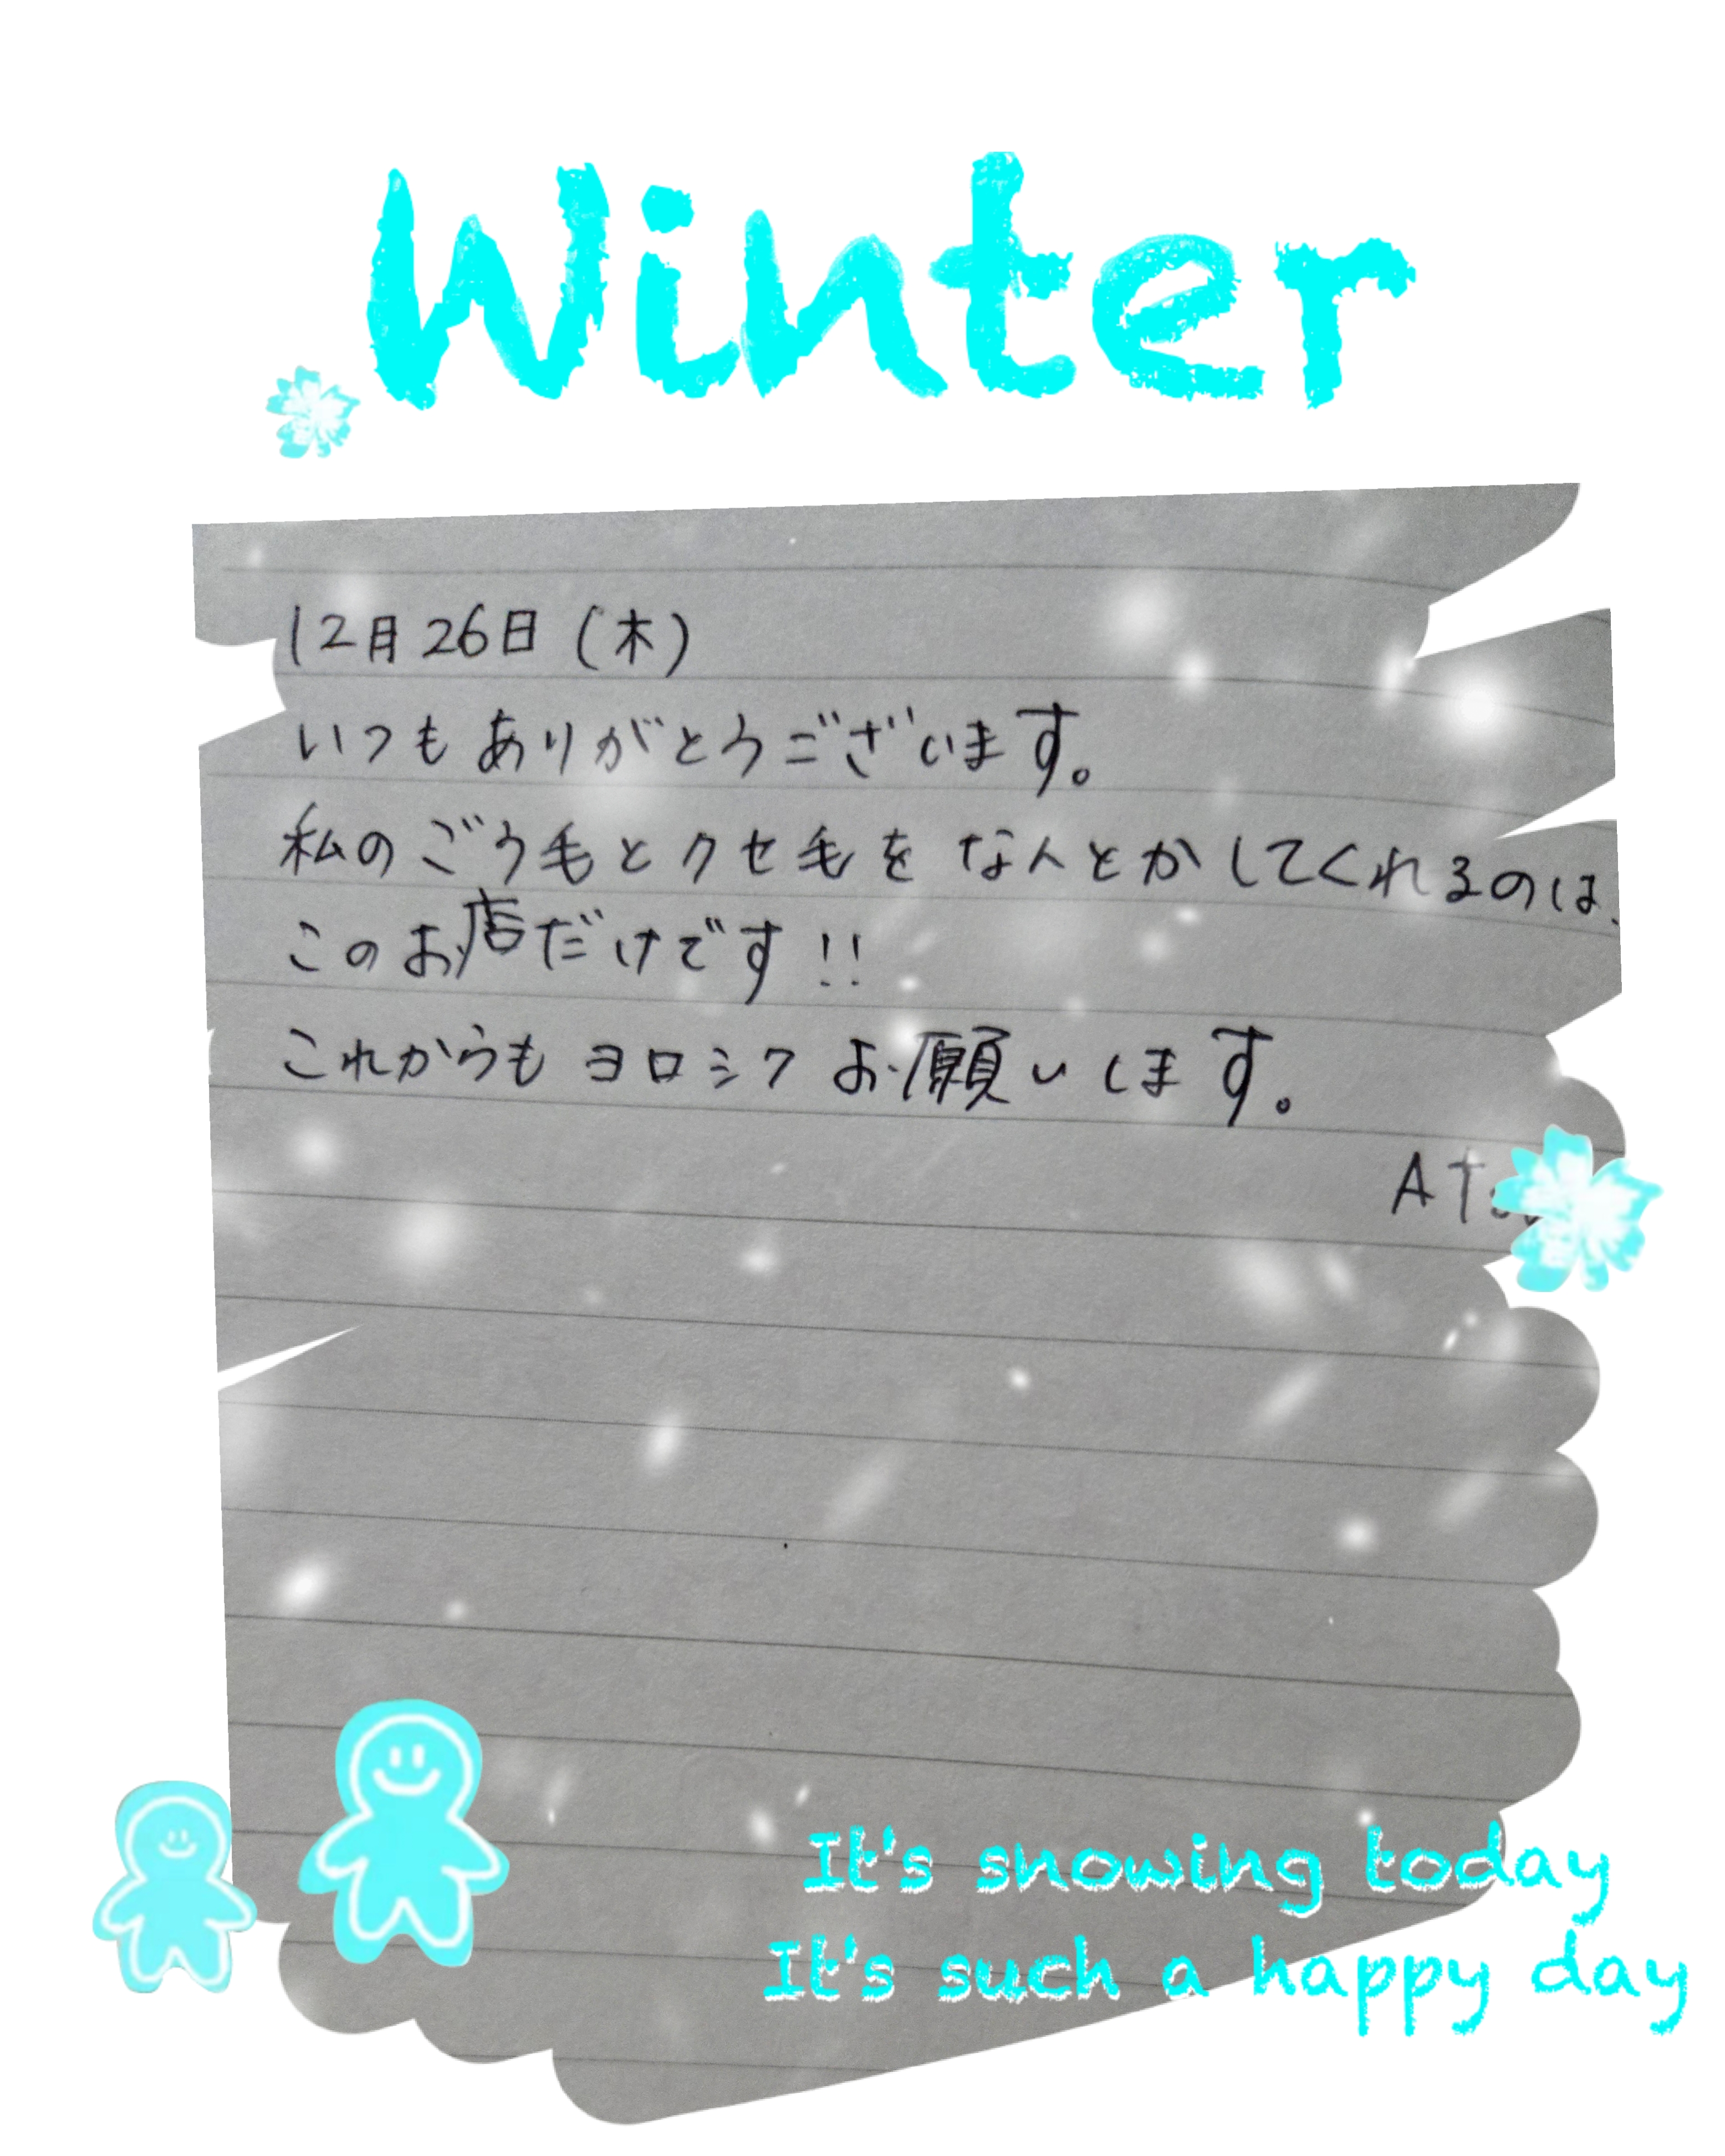 Winter
12月26日(木)
いつもありがとうございます。
私のごう毛とクセ毛をなんとかしてくれるのは、
このお店だけです!!
これからもヨロシクお願いします。
It's snowing today
It's such a happy day